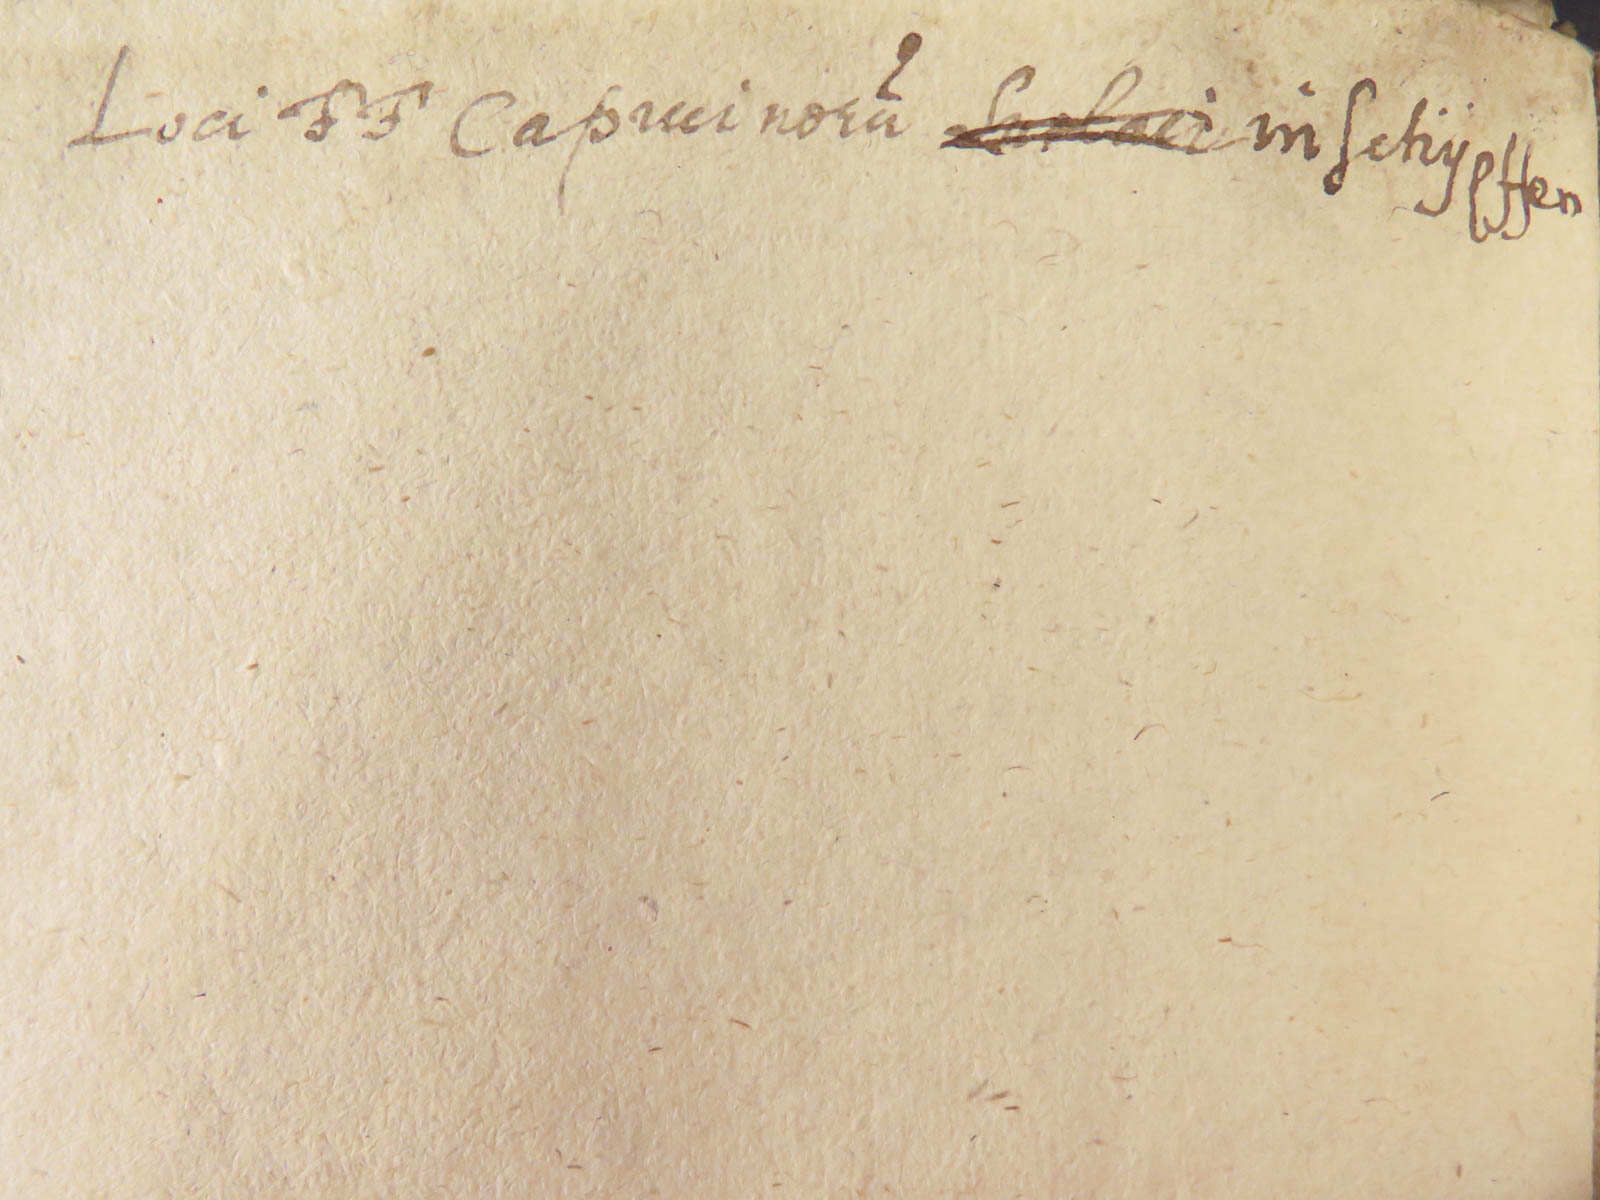 Loci FF Capucinorū in Schÿpffen